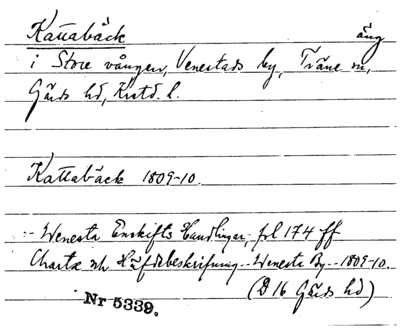 Kattabäck äng
i Store vången, Venestads by, Träne sn,
Gärds hd, Krstd. l.
Kattabäck 1809-10.
- Wenesta Enskifts Handlingar, pl 174 ff
Charta och Häfdebeskrifning - Wenesta By - 1809-10.
(D 16 Gärds hd)
Nr 5339.